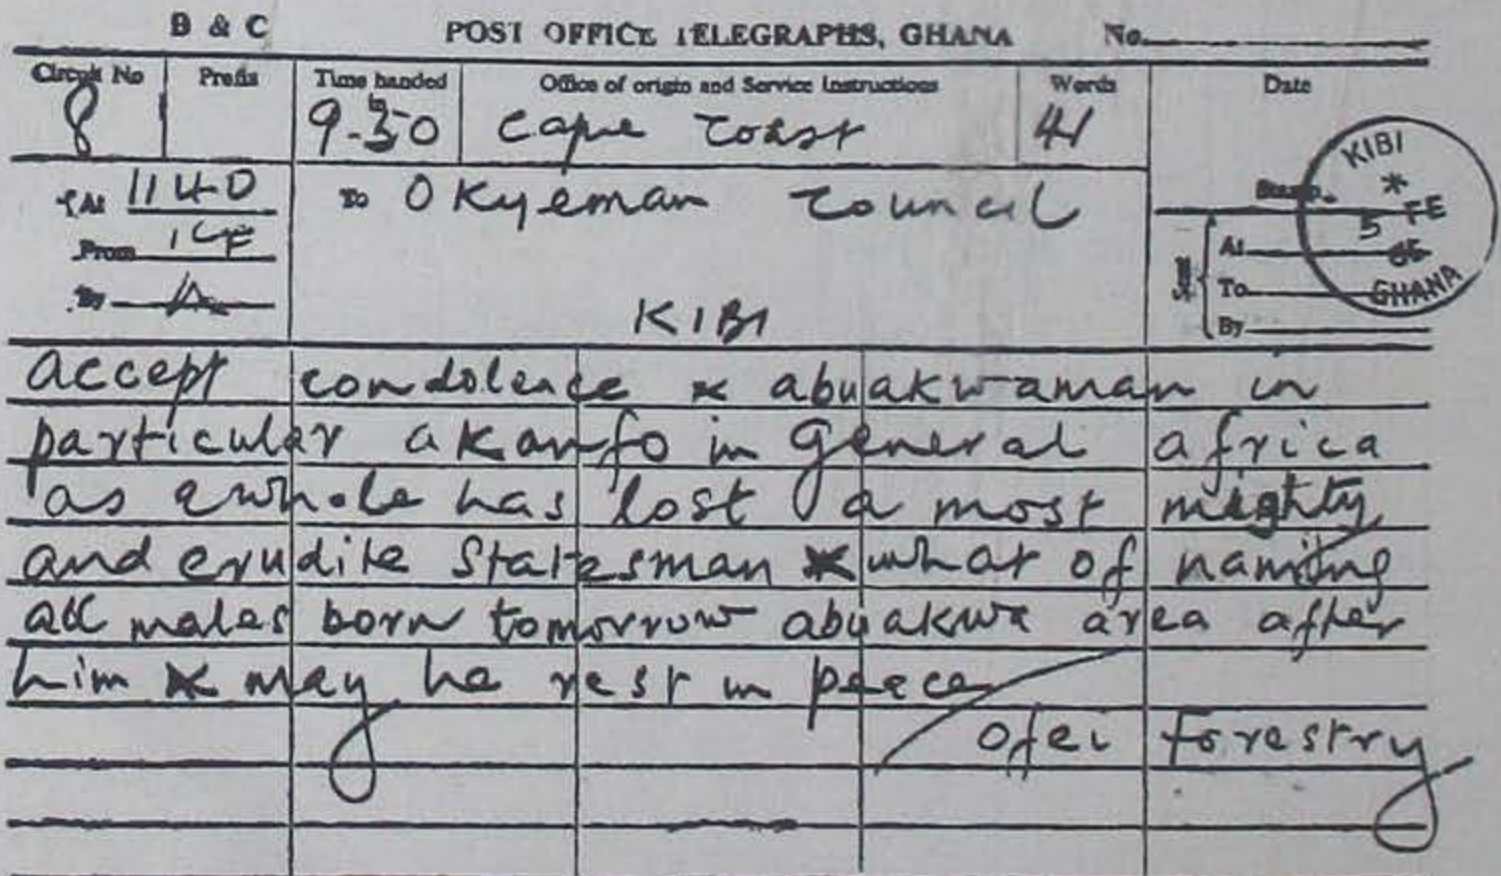 B & C POST OFFICE TELEGRAPHS, GHANA No.
Circuit No Prefix Time handed Office of origin and Service Instructions Words Date
8 9-30 Cape Coast 41
At 1140 To Okyeman Council Stamp
From
By
KIBI
At
To
By
KIBI
*
5 FE
65
GHANA
accept condolence x abuakwaman in
particular akanfo in general africa
as awhole has lost a most mighty
and erudite statesman x what of naming
all males born tomorrow abuakwa area after
him x may he rest in peace
Ofei Forestry